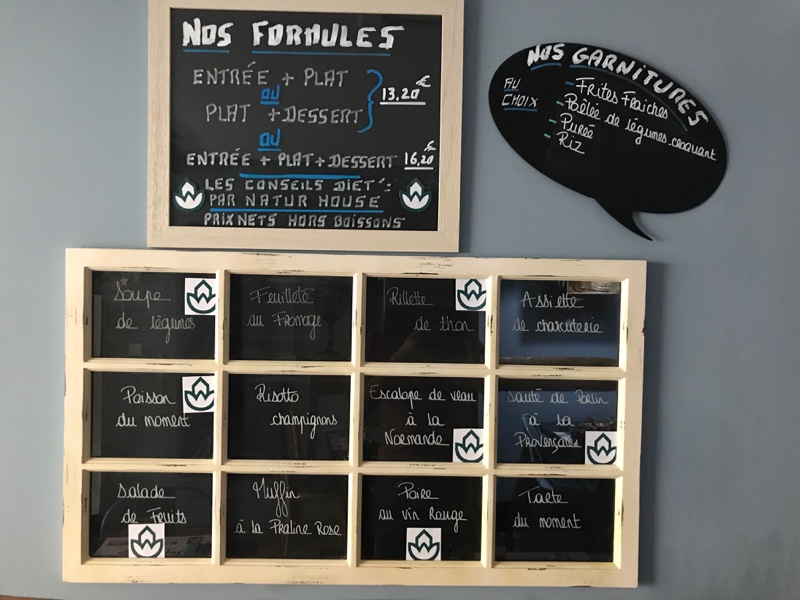 NOS FORMULES
ENTRÉE + PLAT
OU
PLAT + DESSERT
13,20 €
OU
ENTRÉE + PLAT + DESSERT 16,20 €
LES CONSEILS DIET':
PAR NATUR HOUSE
PRIX NETS HORS BOISSONS
NOS GARNITURES
AU
CHOIX
- Frites Fraiches
- Pôêlée de légumes croquant
- Pureé
- Riz
Soupe
de légumes
Feuilleté
au Fromage
Rillette
de thon
Assiette
de charcuterie
Poisson
du moment
Risotto
champignons
Escalope de veau
à la
Normande
Sauté de Porc
à la
Provençale
Salade
de Fruits
Muffin
à la Praline Rose
Poire
au vin Rouge
Tarte
du moment